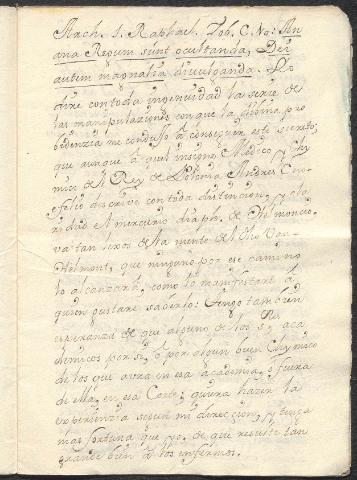 Arch. S. Raphael. Tob. C. No: Ar
cana Regum sunt ocultanda, Dei
autem magnalia divulganda. Yo
dire con toda ingenuidad la serie de
las manipulaciones con que la divina pro
videnzia me condujo à conseguir este secreto,
que aunque aquel insigne Medico, y Chy
mico de el Rey de Polonia Andres
describe con toda distincion, y cla
ridad el mercurio diapho. de
va tan lexos de la mente de el Van-
Helmont, que ninguno por ese camino
lo alcanzará, como lo manifestaré à
quien gustare saberlo: tengo tambien
esperanza de que alguno de los SS. aca
demicos por si, ò por algun buen Chymico
de los que avra en esa academia, ò fuera
de ella, en esa Corte, quiera hazer la
experienzia segun mi direccion, y tenga
mas fortuna que yo, de que resulte tan
grande bien à los enfermos.